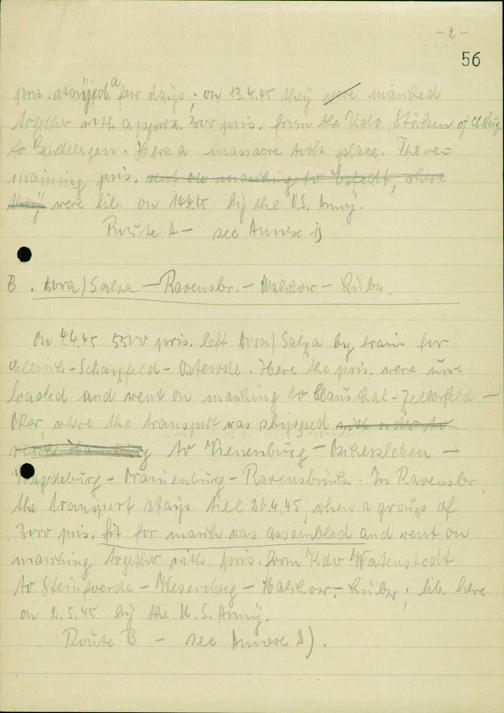 - 2 -
56
pris. stayed a few days; on 13.4.45 they were marched
together with approx. 300 pris. from the Kdo Stöcken of CC Neug.
to Gardelegen. Here a massacre took place. The re-
maining pris. went on marching to Estedt, where
they were lib. on 14.4.45 by the U.S. Army.
Route A - see Annex 1)
B. Dora/Salza - Ravensbr. - Malchow - Lübz.
On 4.4.45 5500 pris. left Dora/Salza by train for
Ellrich - Scharzfeld - Osterode. Here the pris. were un-
loaded and went on marching to Clausthal-Zellerfeld -
Oker where the transport was shipped with order to
to Vienenburg - Oschersleben -
Magdeburg - Oranienburg - Ravensbrück. In Ravensbr.
the transport stays till 26.4.45, when a groups of
3000 pris. fit for march was assembled and went on
marching together with pris. from Kdo Watenstedt
to Steinfoerde - Wesenberg - Malchow - Lübz; lib. here
on 2.5.45 by the U.S. Army.
Route B - see Annex 2).